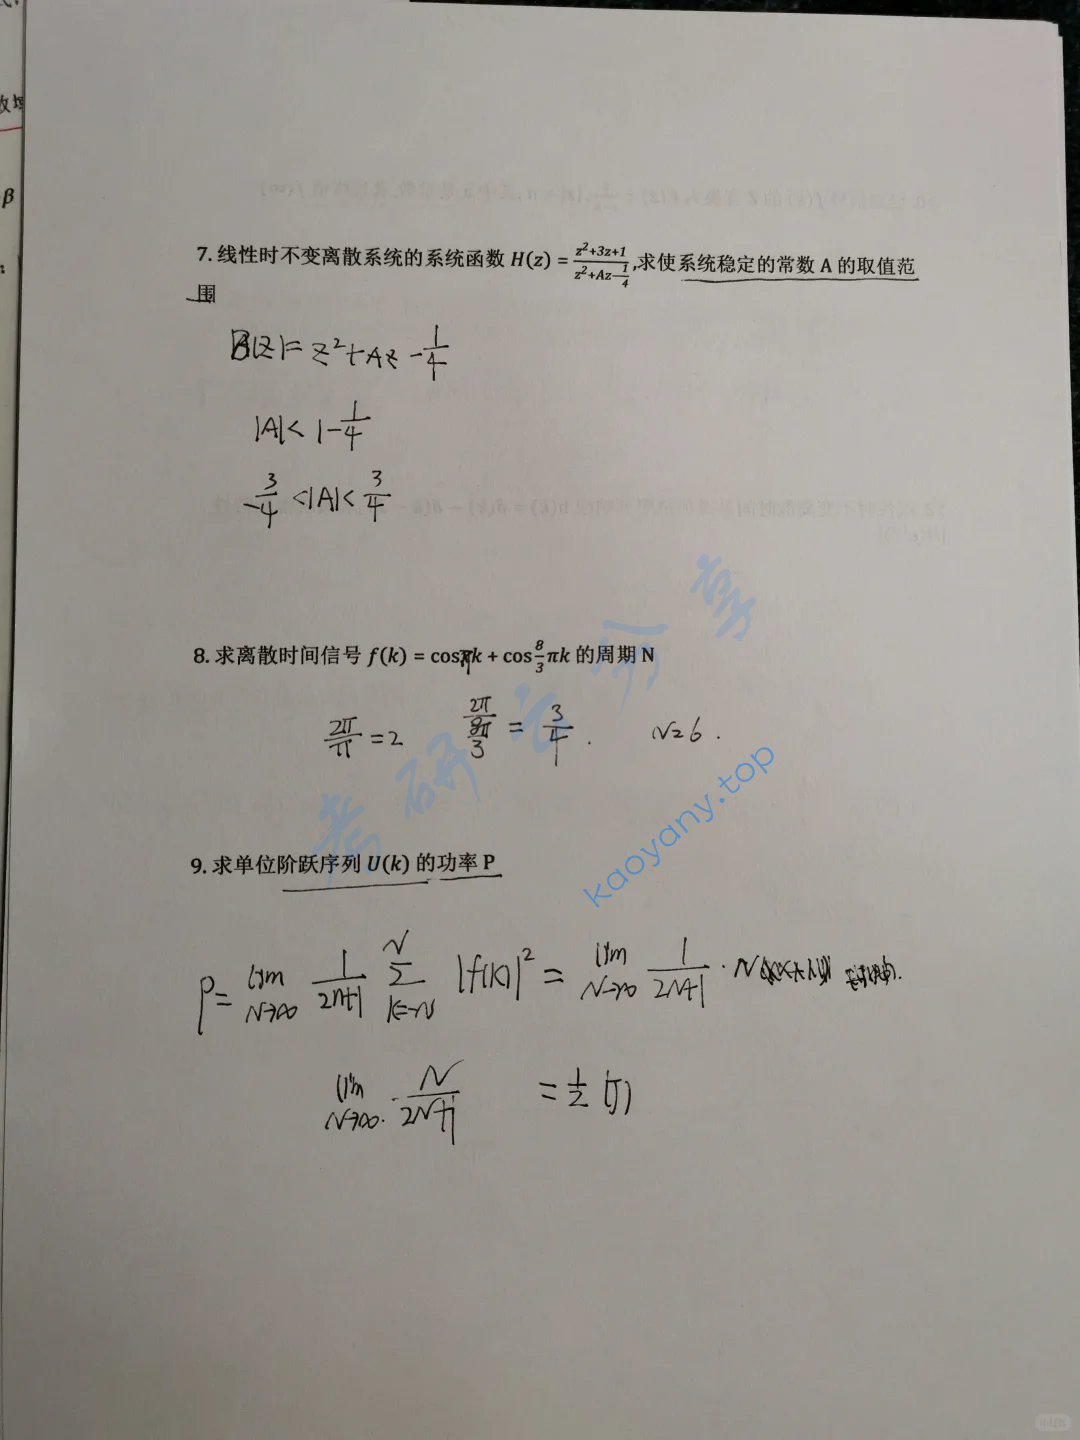 β
7. 线性时不变离散系统的系统函数 H(z) = \frac{z^2+3z+1}{z^2+Az-\frac{1}{4}},求使系统稳定的常数 A 的取值范
围
B(z)= z^2+Az-\frac{1}{4}
|A|< 1-\frac{1}{4}
-\frac{3}{4} <|A|< \frac{3}{4}
8. 求离散时间信号 f(k) = cosπk + cos\frac{8}{3}πk 的周期 N
\frac{2π}{π} =2 \frac{2π}{\frac{8π}{3}} = \frac{3}{4} . N=6 .
9. 求单位阶跃序列 U(k) 的功率 P
P= lim N→∞ \frac{1}{2N+1} \sum_{k=-N}^{N} |f(k)|^2 = lim N→∞ \frac{1}{2N+1} · N
lim N→∞ · \frac{N}{2N+1} = \frac{1}{2} (J)
考研云分享
kaoyany.top